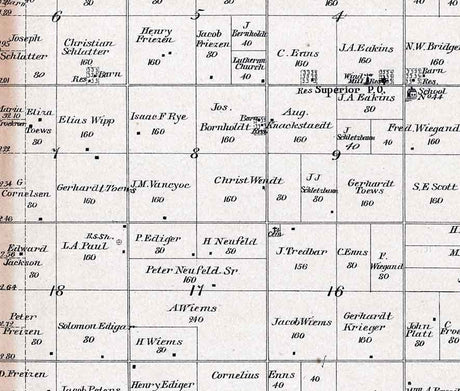 6
5
4
Joseph
Schlatter
80
Christian
Schlatter
160
Res
Barn
Henry
Friezen
160
Jacob
Friezen
80
J
Bornholdt
40
Lutheran
Church
40
C. Enns
160
J.A. Eakins
160
Wind
Mill
Barn
Res.
N.W. Bridge
160
Res
Superior P.O.
School
No 44
Eliza
Toews
80
Elias Wipp
160
Isaac F Rye
160
Jos.
Bornholdt
160
Barn
Aug.
Knackstaedt
160
J.A Eakins
80
J
Schletzbaum
40
40
Fred. Wiegand
160
7
8
9
G
Cornelsen
80
Gerhardt Toews
160
J.M. Vancyoc
160
Christ Wendt
160
J J
Schletzbaum
80
Gerhardt
Toews
160
S.E. Scott
160
Edward
Jackson
80
R.S.Sh.
L.A. Paul
160
P. Ediger
80
H Neufeld
80
Peter Neufeld. Sr
160
Cem
J. Tredbar
156
C. Enns
80
F.
Wiegand
80
18
17
16
Peter
Freizen
80
Solomon Ediger
80
A Wiems
240
H Wiems
80
Jacob Wiems
160
Gerhardt
Krieger
160
John
Platt
80
D. Freizen
Jacob Peters
Henry Ediger
Cornelius Enns
40
40